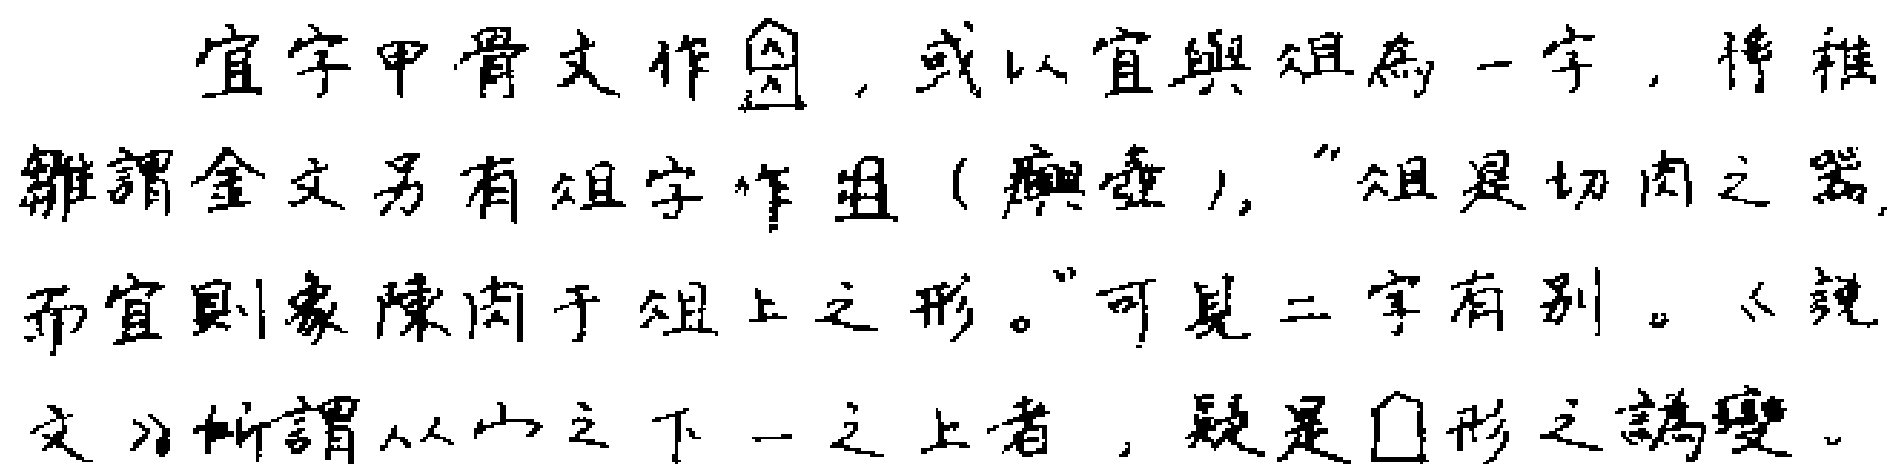 宜字甲骨文作，或以宜與俎為一字，博稚
雛謂金文另有俎字作（𤼈壺），“俎是切肉之器，
而宜則象陳肉于俎上之形。”可見二字有別。《說
文》所謂从宀之下一之上者，疑是形之譌變。